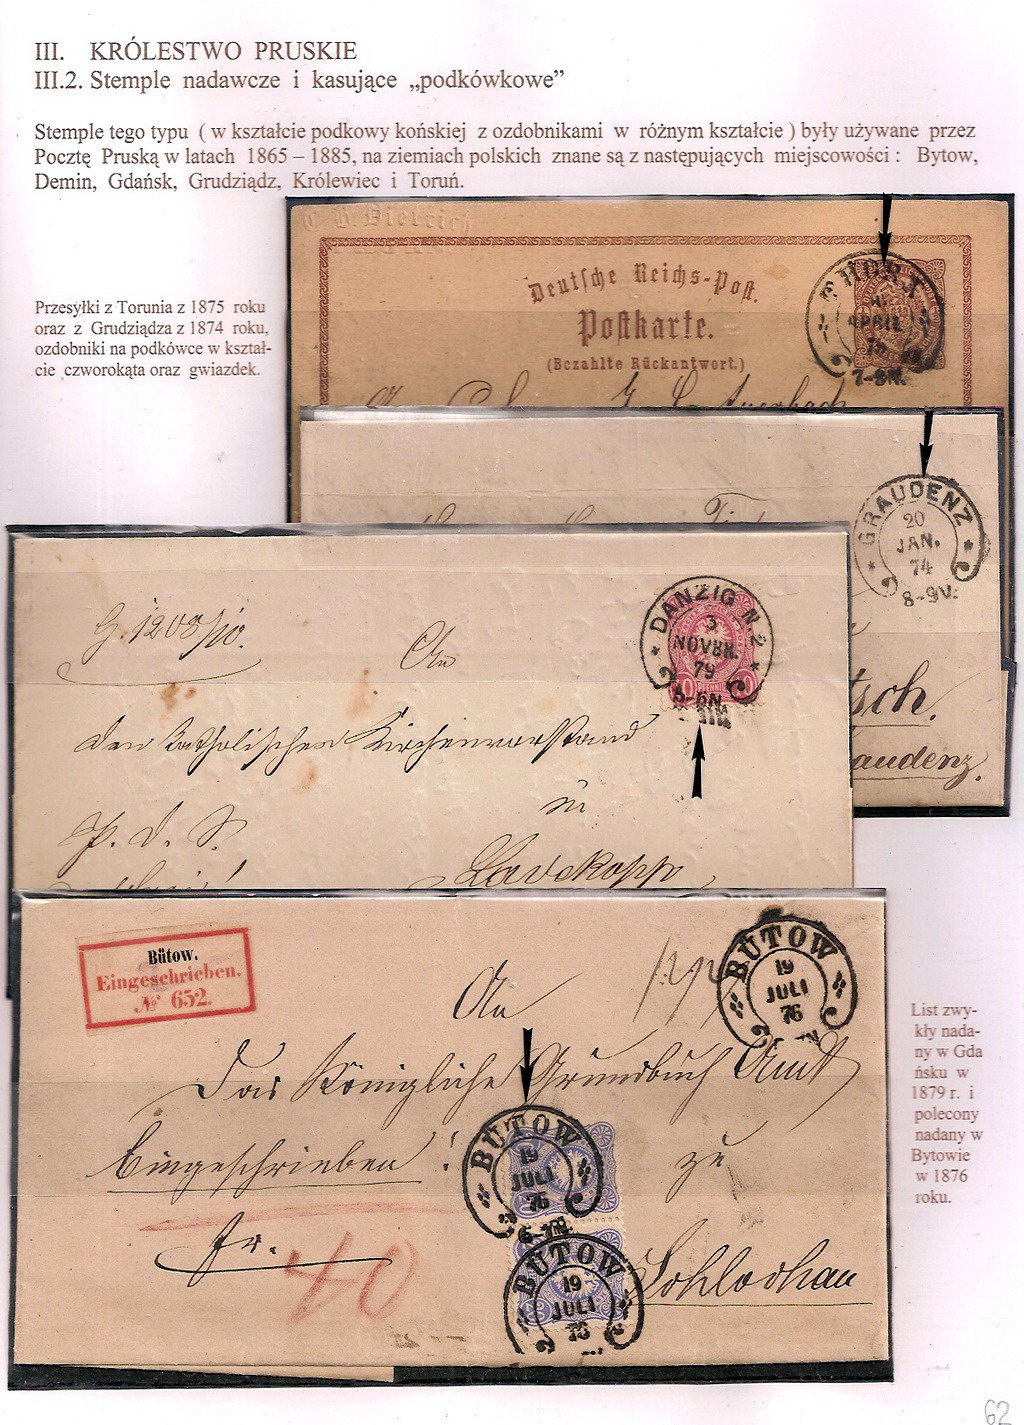 III. KRÓLESTWO PRUSKIE
III.2. Stemple nadawcze i kasujące „podkówkowe”
Stemple tego typu ( w kształcie podkowy końskiej z ozdobnikami w różnym kształcie ) były używane przez
Pocztę Pruską w latach 1865 – 1885, na ziemiach polskich znane są z następujących miejscowości : Bytow,
Demin, Gdańsk, Grudziądz, Królewiec i Toruń.
Przesyłki z Torunia z 1875 roku
oraz z Grudziądza z 1874 roku,
ozdobniki na podkówce w kształ-
cie czworokąta oraz gwiazdek.
C. B. Dietrich
Deutsche Reichs-Post.
Postkarte.
(Bezahlte Rückantwort.)
THORN
APRIL
7-8N.
GRAUDENZ
20
JAN.
74
8-9V.
tsch.
audenz.
G. 1208/10.
An
DANZIG N.2
3
NOVBR.
79
5-6N
10 PFENNIG 10
den Katholischen Kirchenvorstand
in
P. d. S.
Ladekopp
Bütow.
Eingeschrieben.
№ 652.
BÜTOW
19
JULI
76
An
Das Königliche Grundbuch Amt
BÜTOW
19
JULI
76
6-7N.
Eingeschrieben!
zu
Fr.
40
BÜTOW
19
JULI
76
20
Schlochau
List zwy-
kły nada-
ny w Gda
ńsku w
1879 r. i
polecony
nadany w
Bytowie
w 1876
roku.
62